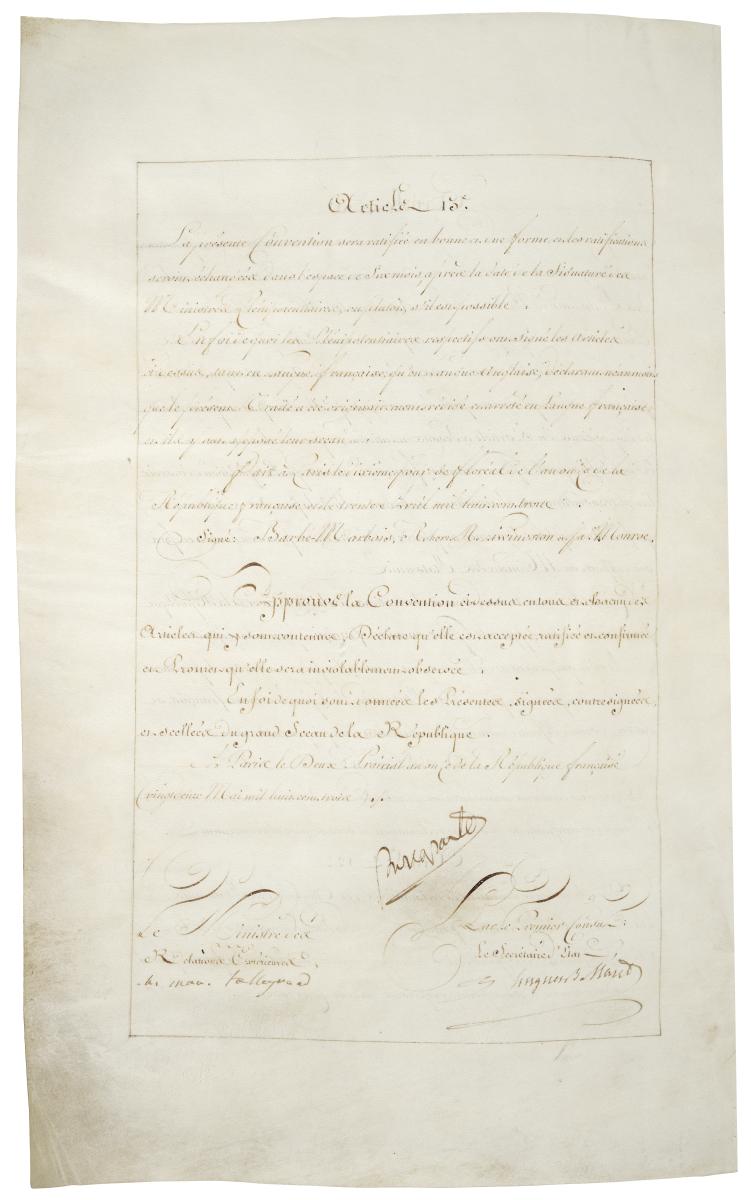 Article 13.e
La présente Convention sera ratifiée en bonne et due forme, et les ratifications
seront échangées dans l'espace de Six mois, après la date de la Signature des
Ministres Plénipotentiaires, ou plutôt, s'il est possible.
En foi de quoi les Plénipotentiaires respectifs ont signé les Articles
ci-dessus, tant en Langue française, qu'en Langue Anglaise, déclarant néanmoins
que le présent Traité a été originairement rédigé et arrêté en Langue française;
et ils y ont apposé leur Sceau.
Fait à Paris le dixième jour de floréal de l'an onze de la
République française, et le trente Avril mil huit cent trois.
Signé: Barbé-Marbois, Robert R. Livingston et Ja.s Monroe.
Approuve la Convention ci-dessus en tous et chacun des
Articles qui y sont contenus; Déclare qu'elle est acceptée ratifiée et confirmée
et Promet qu'elle sera inviolablement observée.
En foi de quoi sont données les Présentes, signées, contresignées,
et scellées du grand Sceau de la République.
À Paris le Deux Prairial an onze de la République française
(vingt deux Mai mil huit cent trois)
Bonaparte
Le Ministre des
Relations Extérieures,
ch. mau. talleyrand
Par le Premier Consul:
Le Secrétaire d'État,
hugues B. Maret